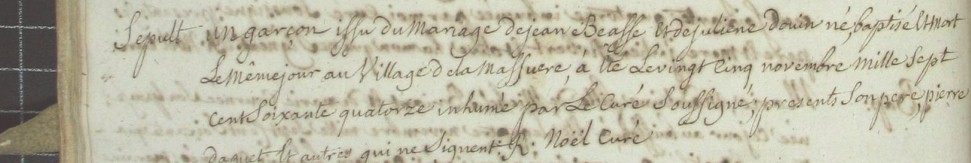 Sepult un garçon issu du Mariage de jean Beasse Et de juliene douin né, baptisé Et Mort
Le Même jour au Village de la Massuere, a Eté Le vingt Cinq novembre Mille Sept
cent Soixante quatorze inhumé par Le Curé Soussigné; presents Son pere, pierre
daguet Et autres qui ne Signent. R. Noël Curé